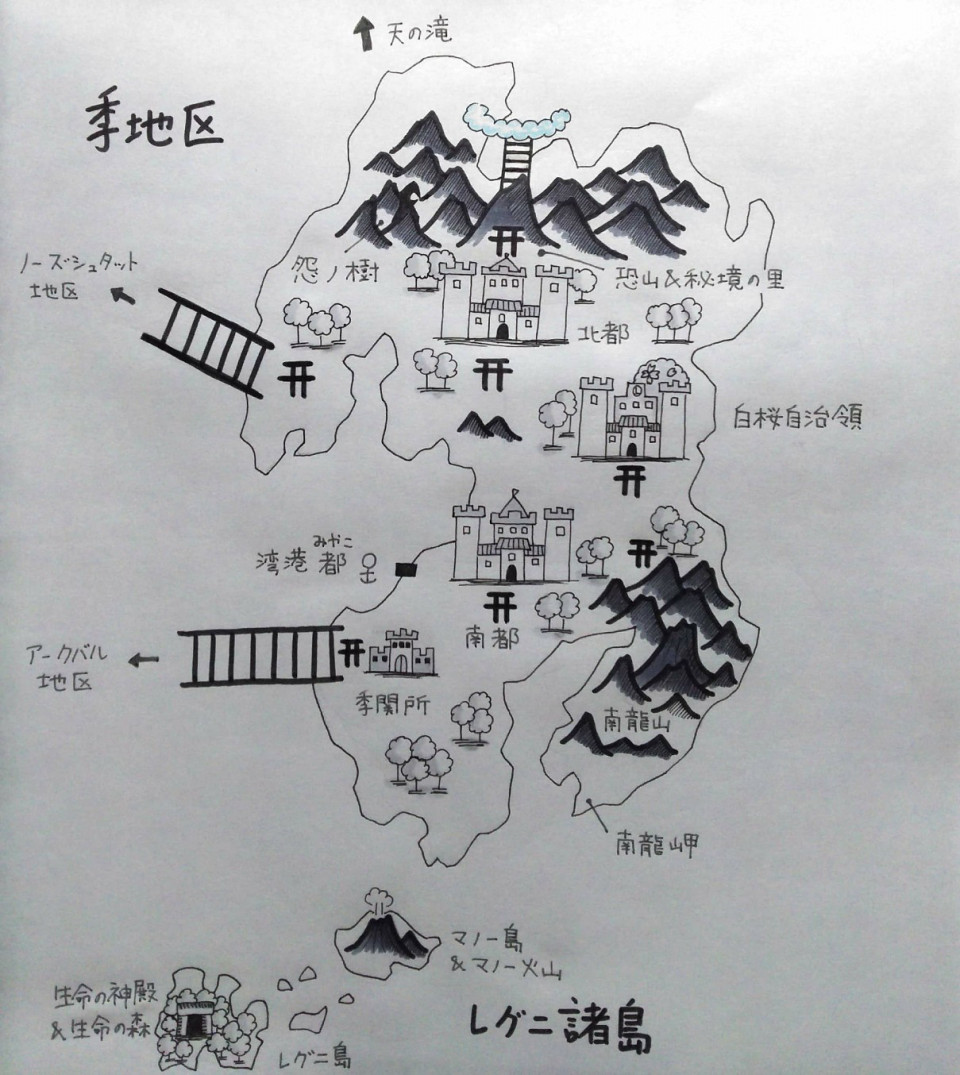 天の滝
季地区
ノーズシュタット
地区
怨ノ樹
恐山&秘境の里
北都
白桜自治領
みやこ
湾港都
南都
アークバル
地区
季関所
南龍山
南龍岬
マノー島
&マノー火山
生命の神殿
&生命の森
レグニ島
レグニ諸島